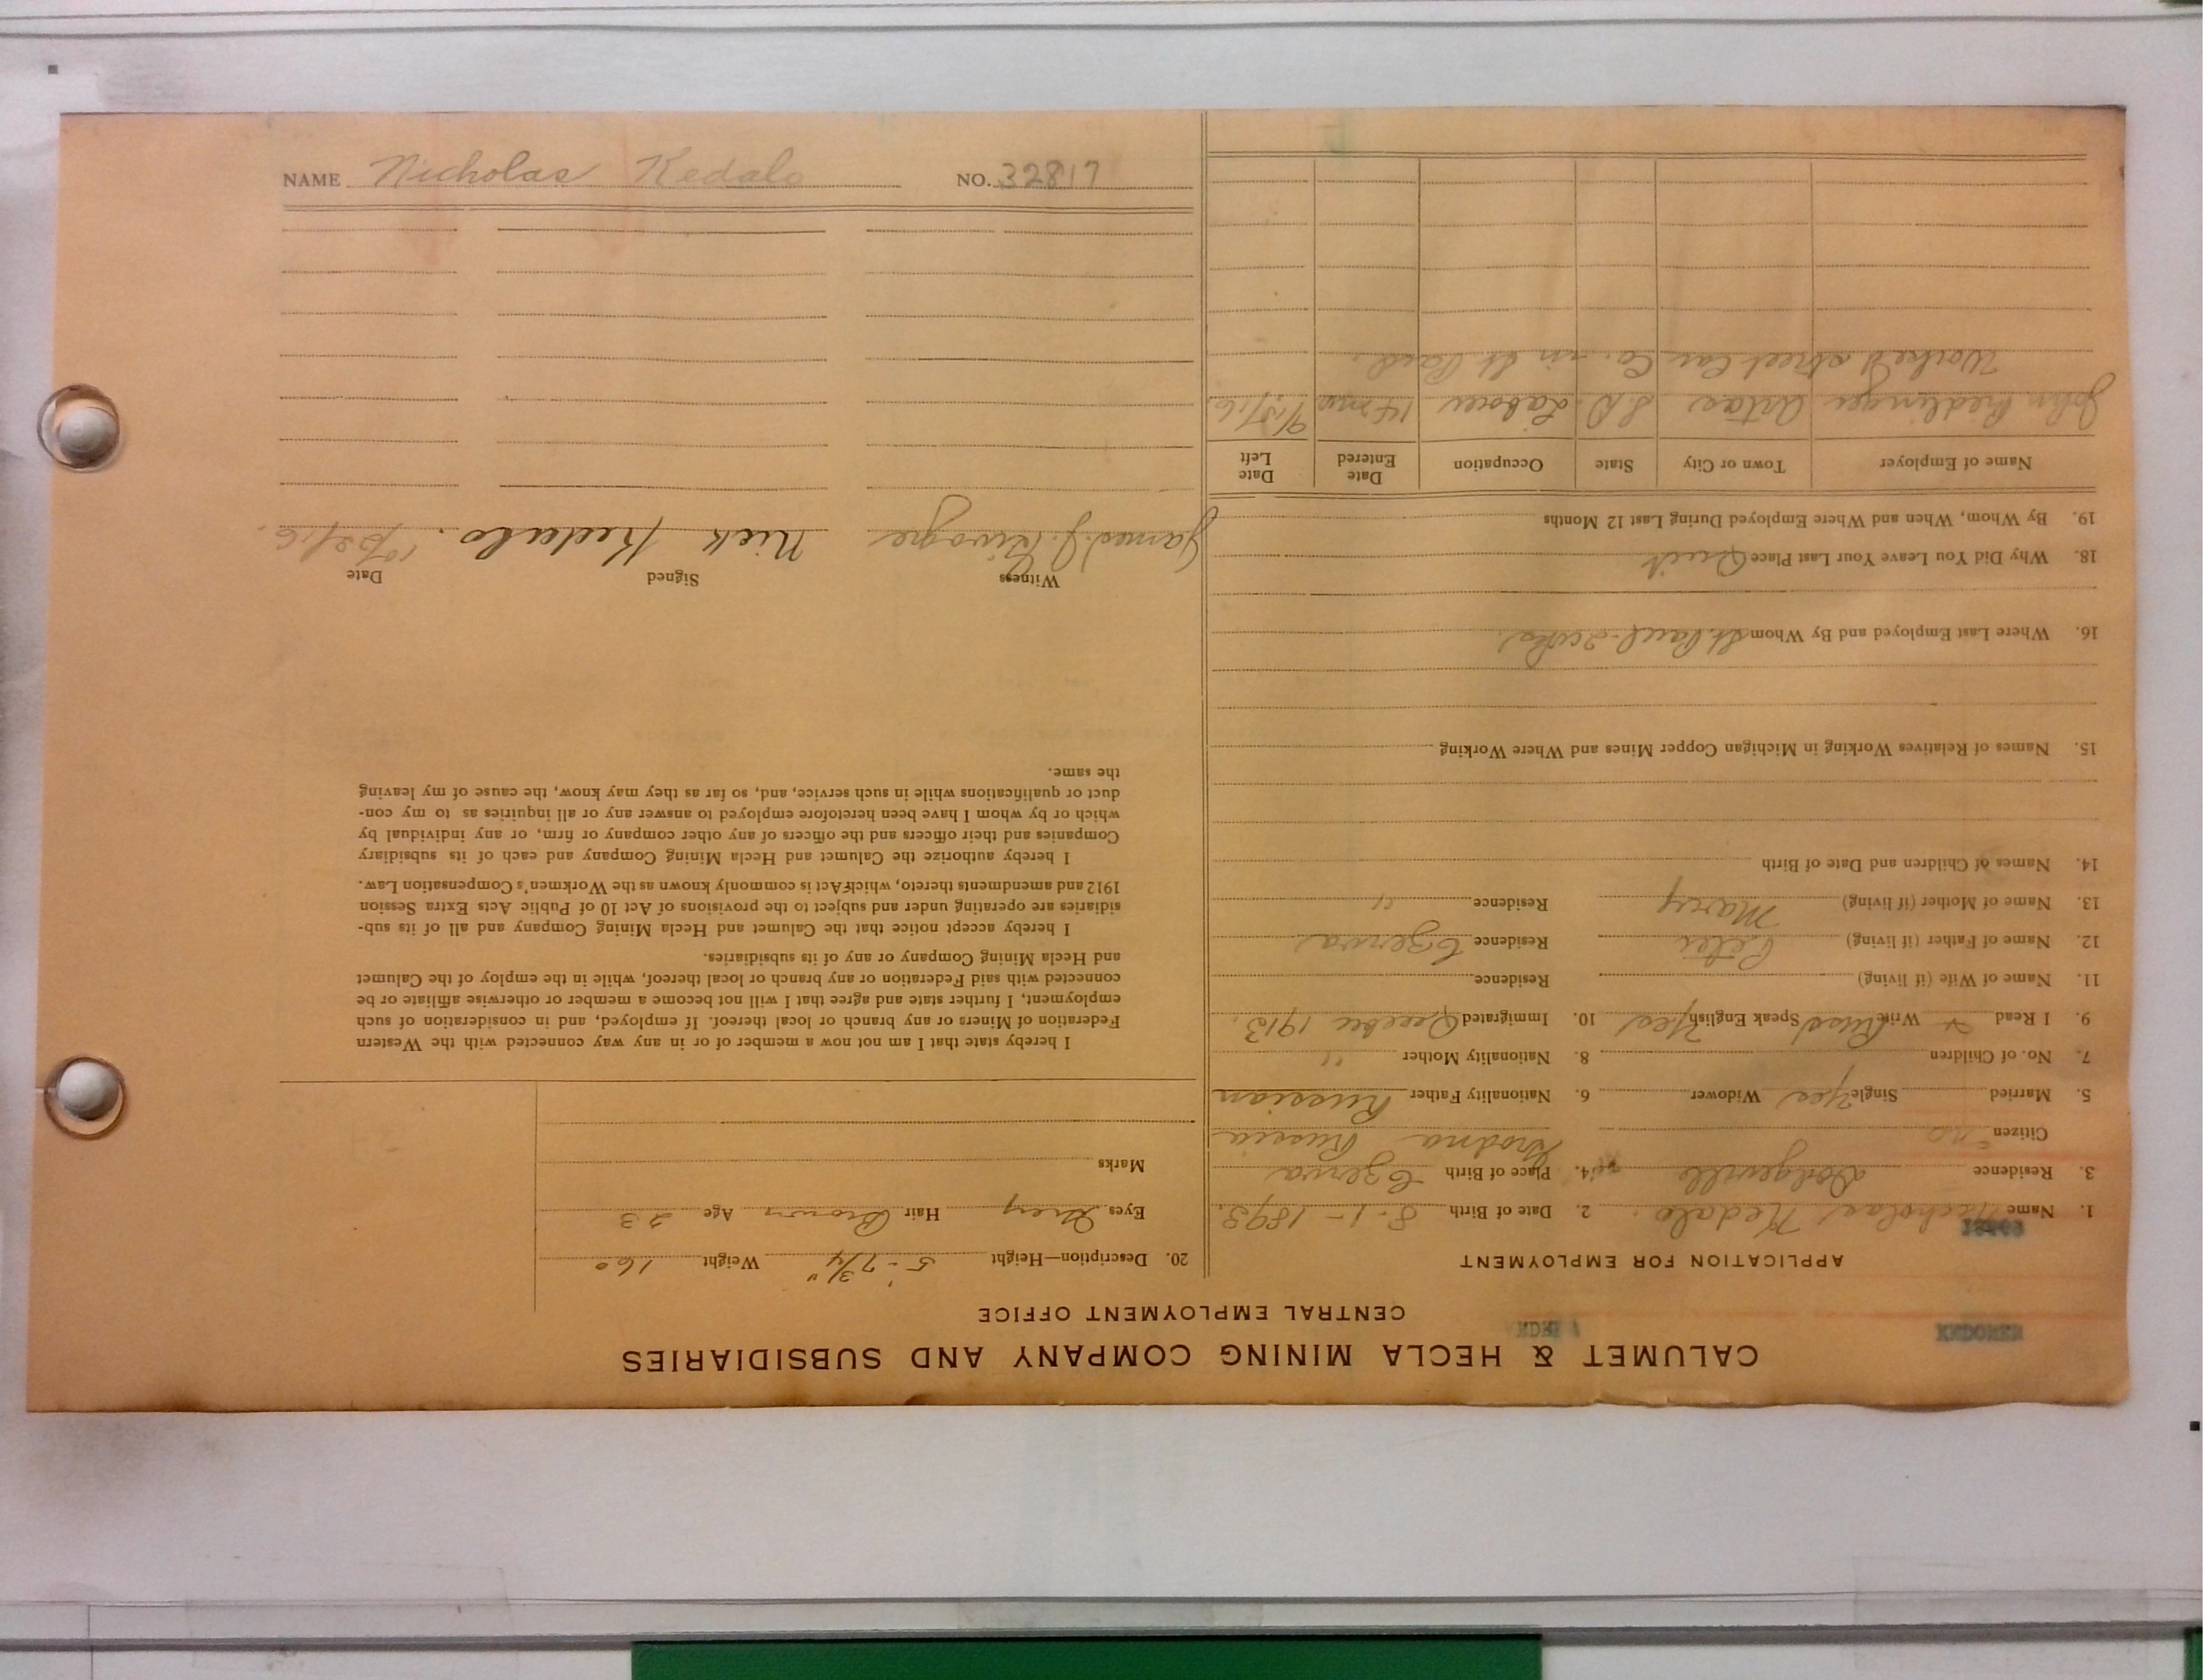 NAME Nicholas Kedalo NO. 32817
CALUMET & HECLA MINING COMPANY AND SUBSIDIARIES
CENTRAL EMPLOYMENT OFFICE
APPLICATION FOR EMPLOYMENT
1. Name Nicholas Kedalo. 2. Date of Birth 8-1-1893.
3. Residence Dodgeville 4. Place of Birth Czerwa
Citizen no Grodna Russia
5. Married Single Yes Widower 6. Nationality Father Russian
7. No. of Children 8. Nationality Mother "
9. I Read & Write Russ Speak English Yes 10. Immigrated December 1913.
11. Name of Wife (if living) Residence
12. Name of Father (if living) Peter Residence Czerwa
13. Name of Mother (if living) Mary Residence "
14. Names of Children and Date of Birth
15. Names of Relatives Working in Michigan Copper Mines and Where Working
16. Where Last Employed and By Whom St. Paul - 2 wks.
18. Why Did You Leave Your Last Place Quit
19. By Whom, When and Where Employed During Last 12 Months
Name of Employer Town or City State Occupation Date Entered Date Left
John Bedlinger Artas S.D. Laborer 14 mos 9/15/16
Worked street Car Co. in St Paul.
20. Description—Height 5'-7 3/4" Weight 160
Eyes Grey Hair Brown Age 23
Marks
I hereby state that I am not now a member of or in any way connected with the Western
Federation of Miners or any branch or local thereof. If employed, and in consideration of such
employment, I further state and agree that I will not become a member or otherwise affiliate or be
connected with said Federation or any branch or local thereof, while in the employ of the Calumet
and Hecla Mining Company or any of its subsidiaries.
I hereby accept notice that the Calumet and Hecla Mining Company and all of its sub-
sidiaries are operating under and subject to the provisions of Act 10 of Public Acts Extra Session
1912 and amendments thereto, which Act is commonly known as the Workmen's Compensation Law.
I hereby authorize the Calumet and Hecla Mining Company and each of its subsidiary
Companies and their officers and the officers of any other company or firm, or any individual by
which or by whom I have been heretofore employed to answer any or all inquiries as to my con-
duct or qualifications while in such service, and, so far as they may know, the cause of my leaving
the same.
Witness Signed Date
James J. Nick Kedalo.